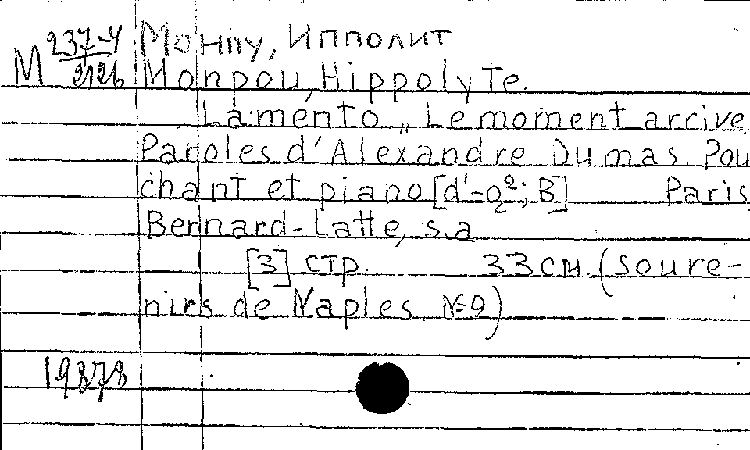 М 237-4/2126 Монпу, Ипполит
Monpou, Hippolyte.
Lamento „Le moment arrive
Paroles d'Alexandre Dumas. Pou
chant et piano [d¹-a²; B] Paris,
Bernard-Latte, s.a
[3] стр. 33 см. (Souve-
nirs de Naples. №9)
19878